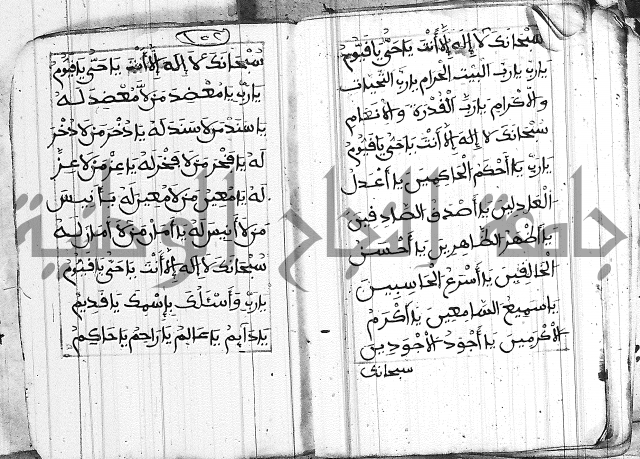 سُبْحَانَكَ لَا إِلٰهَ إِلَّا أَنْتَ يَا حَيُّ يَا قَيُّومُ
يَا رَبِّ يَا رَبَّ الْبَيْتِ الْحَرَامِ يَا رَبَّ التَّحِيَّاتِ
وَالْإِكْرَامِ يَا رَبَّ الْقُدْرَةِ وَالْإِنْعَامِ
سُبْحَانَكَ لَا إِلٰهَ إِلَّا أَنْتَ يَا حَيُّ يَا قَيُّومُ
يَا رَبِّ يَا أَحْكَمَ الْحَاكِمِينَ يَا أَعْدَلَ
الْعَادِلِينَ يَا أَصْدَقَ الصَّادِقِينَ
يَا أَطْهَرَ الطَّاهِرِينَ يَا أَحْسَنَ
الْخَالِقِينَ يَا أَسْرَعَ الْحَاسِبِينَ
يَا سَمِيعَ السَّامِعِينَ يَا أَكْرَمَ
الْأَكْرَمِينَ يَا أَجْوَدَ الْأَجْوَدِينَ
سبحانك
سُبْحَانَكَ لَا إِلٰهَ إِلَّا أَنْتَ يَا حَيُّ يَا قَيُّومُ
يَا رَبِّ يَا مُعْضِدَ مَنْ لَا مُعْضِدَ لَهُ
يَا سَنَدَ مَنْ لَا سَنَدَ لَهُ يَا ذُخْرَ مَنْ لَا ذُخْرَ
لَهُ يَا فَخْرَ مَنْ لَا فَخْرَ لَهُ يَا عِزَّ مَنْ لَا عِزَّ
لَهُ يَا مُعِينَ مَنْ لَا مُعِينَ لَهُ يَا أَنِيسَ
مَنْ لَا أَنِيسَ لَهُ يَا أَمَانَ مَنْ لَا أَمَانَ لَهُ
سُبْحَانَكَ لَا إِلٰهَ إِلَّا أَنْتَ يَا حَيُّ يَا قَيُّومُ
يَا رَبِّ وَأَسْئَلُكَ بِإِسْمِكَ يَا قَدِيمُ
يَا دَايِمُ يَا عَالِمُ يَا رَاحِمُ يَا حَاكِمُ
جامعة النجاح الوطنية